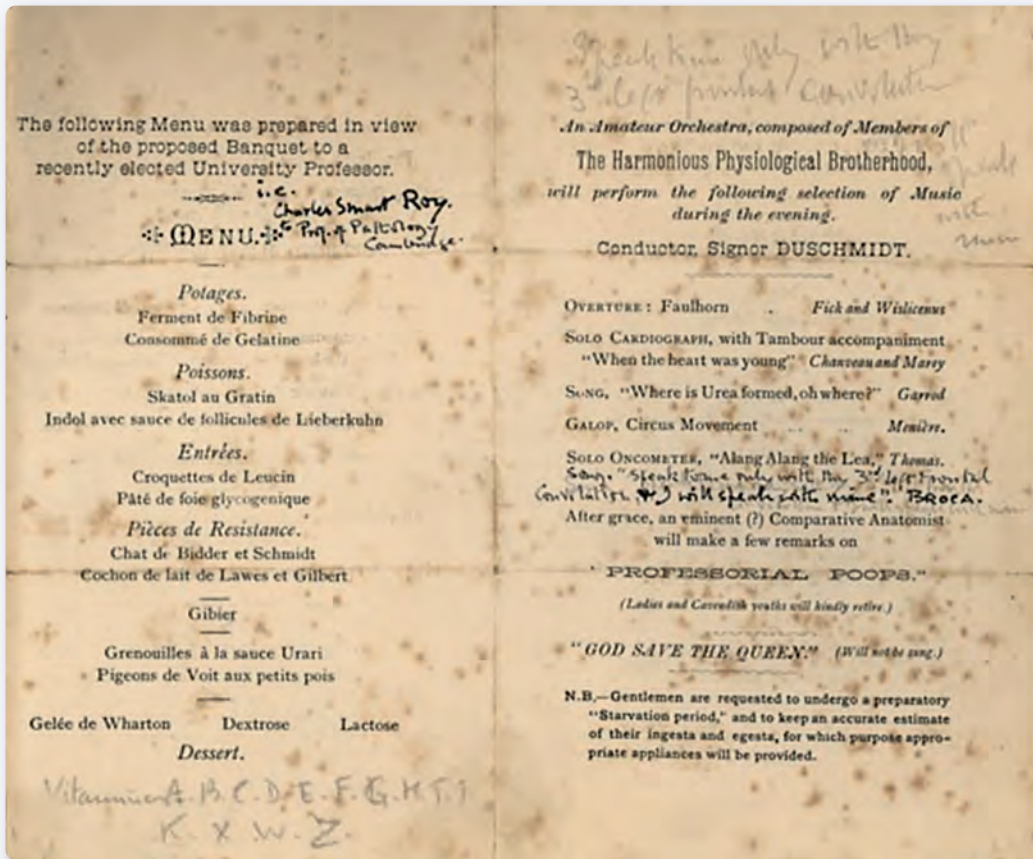 The following Menu was prepared in view
of the proposed Banquet to a
recently elected University Professor.
i.e.
Charles Smart Roy.
Prof. of Pathology
Cambridge.
MENU.
Potages.
Ferment de Fibrine
Consommé de Gelatine
Poissons.
Skatol au Gratin
Indol avec sauce de follicules de Lieberkuhn
Entrées.
Croquettes de Leucin
Pâté de foie glycogenique
Pièces de Resistance.
Chat de Bidder et Schmidt
Cochon de lait de Lawes et Gilbert
Gibier
Grenouilles à la sauce Urari
Pigeons de Voit aux petits pois
Gelée de Wharton Dextrose Lactose
Dessert.
A. B. C. D. E. F. G. H.
K. X W. Z.
Speak with thy
3rd left frontal convolution
An Amateur Orchestra, composed of Members of
The Harmonious Physiological Brotherhood,
will perform the following selection of Music
during the evening.
with
Conductor, Signor DUSCHMIDT.
OVERTURE: Faulhorn . Fick and Wislicenus
SOLO CARDIOGRAPH, with Tambour accompaniment
"When the heart was young" Chauveau and Marey
SONG, "Where is Urea formed, oh where?" Garrod
GALOP, Circus Movement ... ... Menière.
SOLO ONCOMETER, "Alang Alang the Lea," Thomas.
Song. "Speak to me only with thy 3rd left frontal
Convolution & I will speak with mine". BROCA.
After grace, an eminent (?) Comparative Anatomist
will make a few remarks on
"PROFESSORIAL POOPS."
(Ladies and Cavendish youths will kindly retire.)
"GOD SAVE THE QUEEN." (Will not be sung.)
N.B.—Gentlemen are requested to undergo a preparatory
"Starvation period," and to keep an accurate estimate
of their ingesta and egesta, for which purpose appro-
priate appliances will be provided.